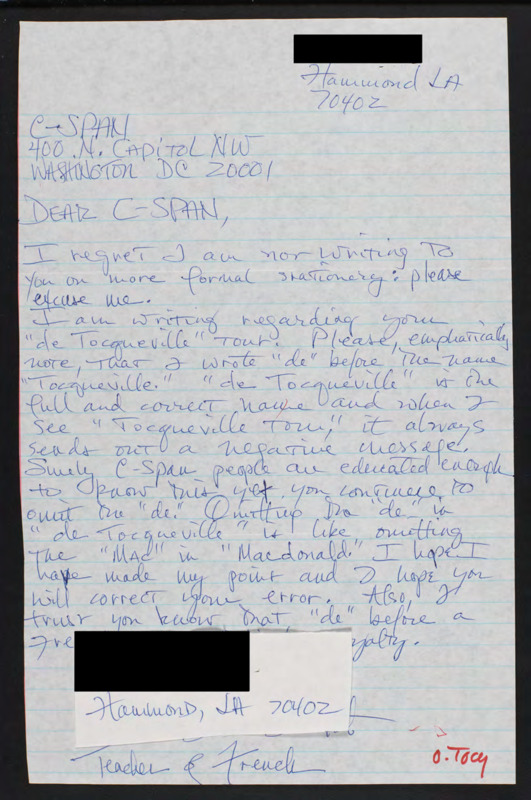 Hammond LA
70402
C-SPAN
400 N. CAPITOL NW
WASHINGTON DC 20001
DEAR C-SPAN,
I regret I am not writing to
you on more formal stationery: please
excuse me.
I am writing regarding your
"de Tocqueville" tour. Please, emphatically
note, that I wrote "de" before the name
"Tocqueville." "de Tocqueville" is the
full and correct name and when I
see "Tocqueville Tour," it always
sends out a negative message.
Surely C-Span people are educated enough
to know this yet, you continue to
omit the "de." Omitting the "de" in
"de Tocqueville" is like omitting
the "Mac" in "Macdonald." I hope I
have made my point and I hope you
will correct your error. Also, I
trust you know that "de" before a
Fre yalty.
Hammond, LA 70402
Teacher of French
O. Tocq